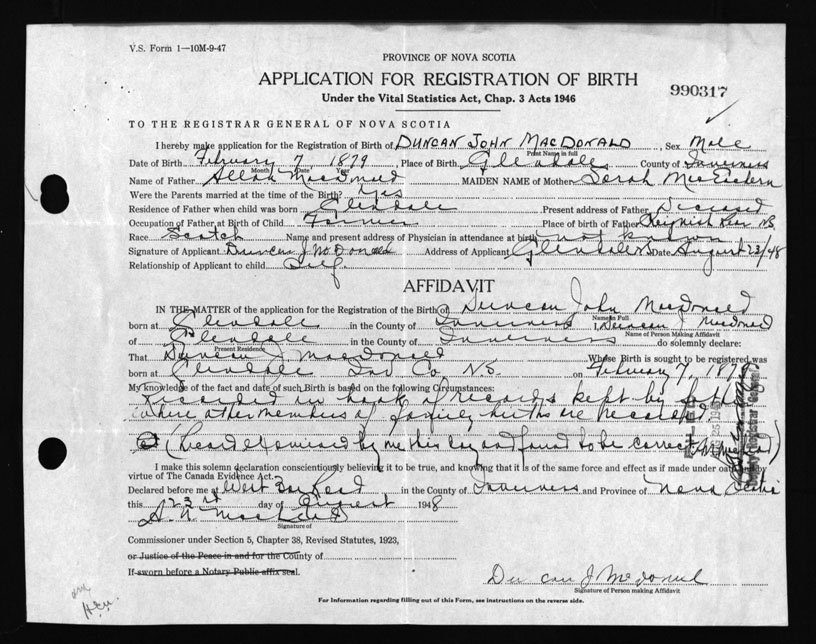 V.S. Form 1—10M-9-47
PROVINCE OF NOVA SCOTIA
APPLICATION FOR REGISTRATION OF BIRTH
990317
Under the Vital Statistics Act, Chap. 3 Acts 1946
TO THE REGISTRAR GENERAL OF NOVA SCOTIA
I hereby make application for the Registration of Birth of DUNCAN JOHN MACDONALD, Sex Male
Print Name in full
Date of Birth February 7 1879, Place of Birth Glendale County of Inverness
Month Date Year
Name of Father Allan MacDonald MAIDEN NAME of Mother Sarah MacEachern
Were the Parents married at the time of the Birth? Yes
Residence of Father when child was born Glendale Present address of Father Deceased
Occupation of Father at Birth of Child Farmer Place of birth of Father N.S.
Race Scotch Name and present address of Physician in attendance at birth not known
Signature of Applicant Duncan J McDonald Address of Applicant Glendale Date August 23/48
Relationship of Applicant to child Self
AFFIDAVIT
IN THE MATTER of the application for the Registration of the Birth of Duncan John Macdonald
Name in Full
born at Glendale in the County of Inverness I, Duncan J Macdonald
Name of Person Making Affidavit
of Glendale in the County of Inverness do solemnly declare:
Present Residence
That Duncan J MacDonald Whose Birth is sought to be registered was
born at Glendale Inv Co. N.S. on February 7, 1879
My knowledge of the fact and date of such Birth is based on the following Circumstances:
Recorded in book of records kept by
where other members of family births are recorded.
(Record examined by me this day and found to be correct
I make this solemn declaration conscientiously believing it to be true, and knowing that it is of the same force and effect as if made under oath by
virtue of The Canada Evidence Act.
Declared before me at West Bay Road in the County of Inverness and Province of Nova Scotia
this 23rd day of August 1948
Signature of
Commissioner under Section 5, Chapter 38, Revised Statutes, 1923,
or Justice of the Peace in and for the County of
If sworn before a Notary Public affix seal.
Duncan J McDonald
Signature of Person making Affidavit
For Information regarding filling out of this Form, see instructions on the reverse side.